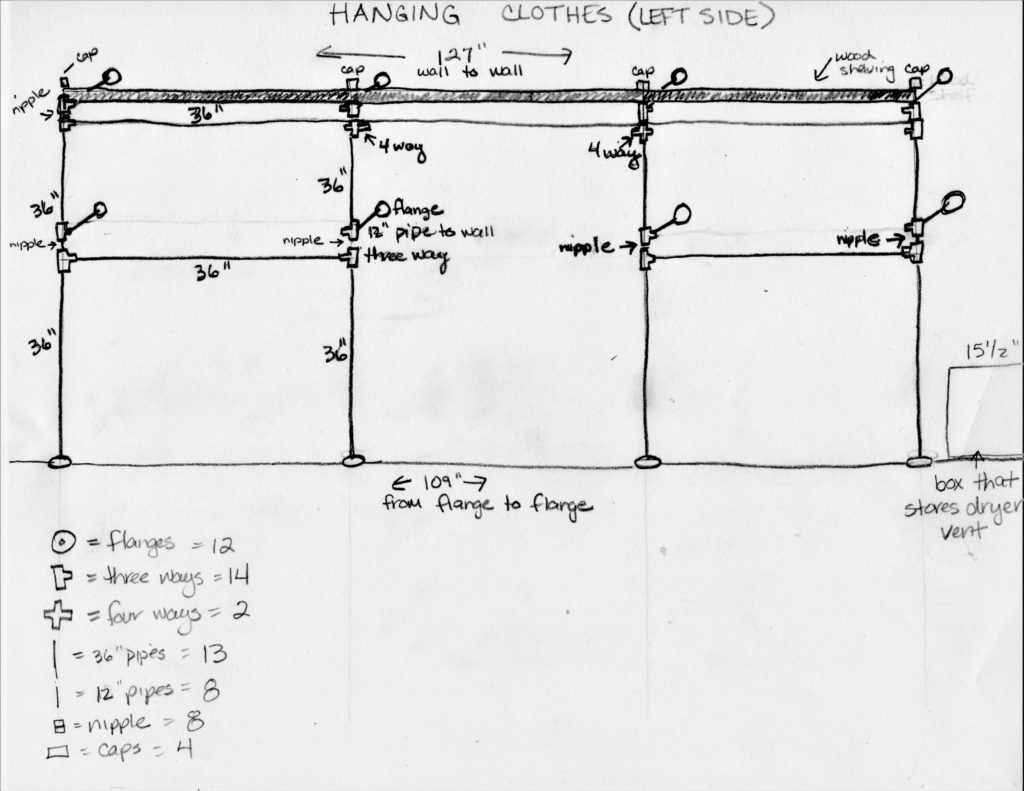 HANGING CLOTHES (LEFT SIDE)
127"
wall to wall
cap
cap
cap
cap
wood
shelving
wood
shelf
nipple
36"
4 way
4 way
36"
36"
flange
12" pipe to wall
three way
nipple
nipple
nipple
nipple
36"
36"
36"
15 1/2"
109"
from flange to flange
box that
stores dryer
vent
= flanges = 12
= three ways = 14
= four ways = 2
= 36" pipes = 13
= 12" pipes = 8
= nipple = 8
= caps = 4